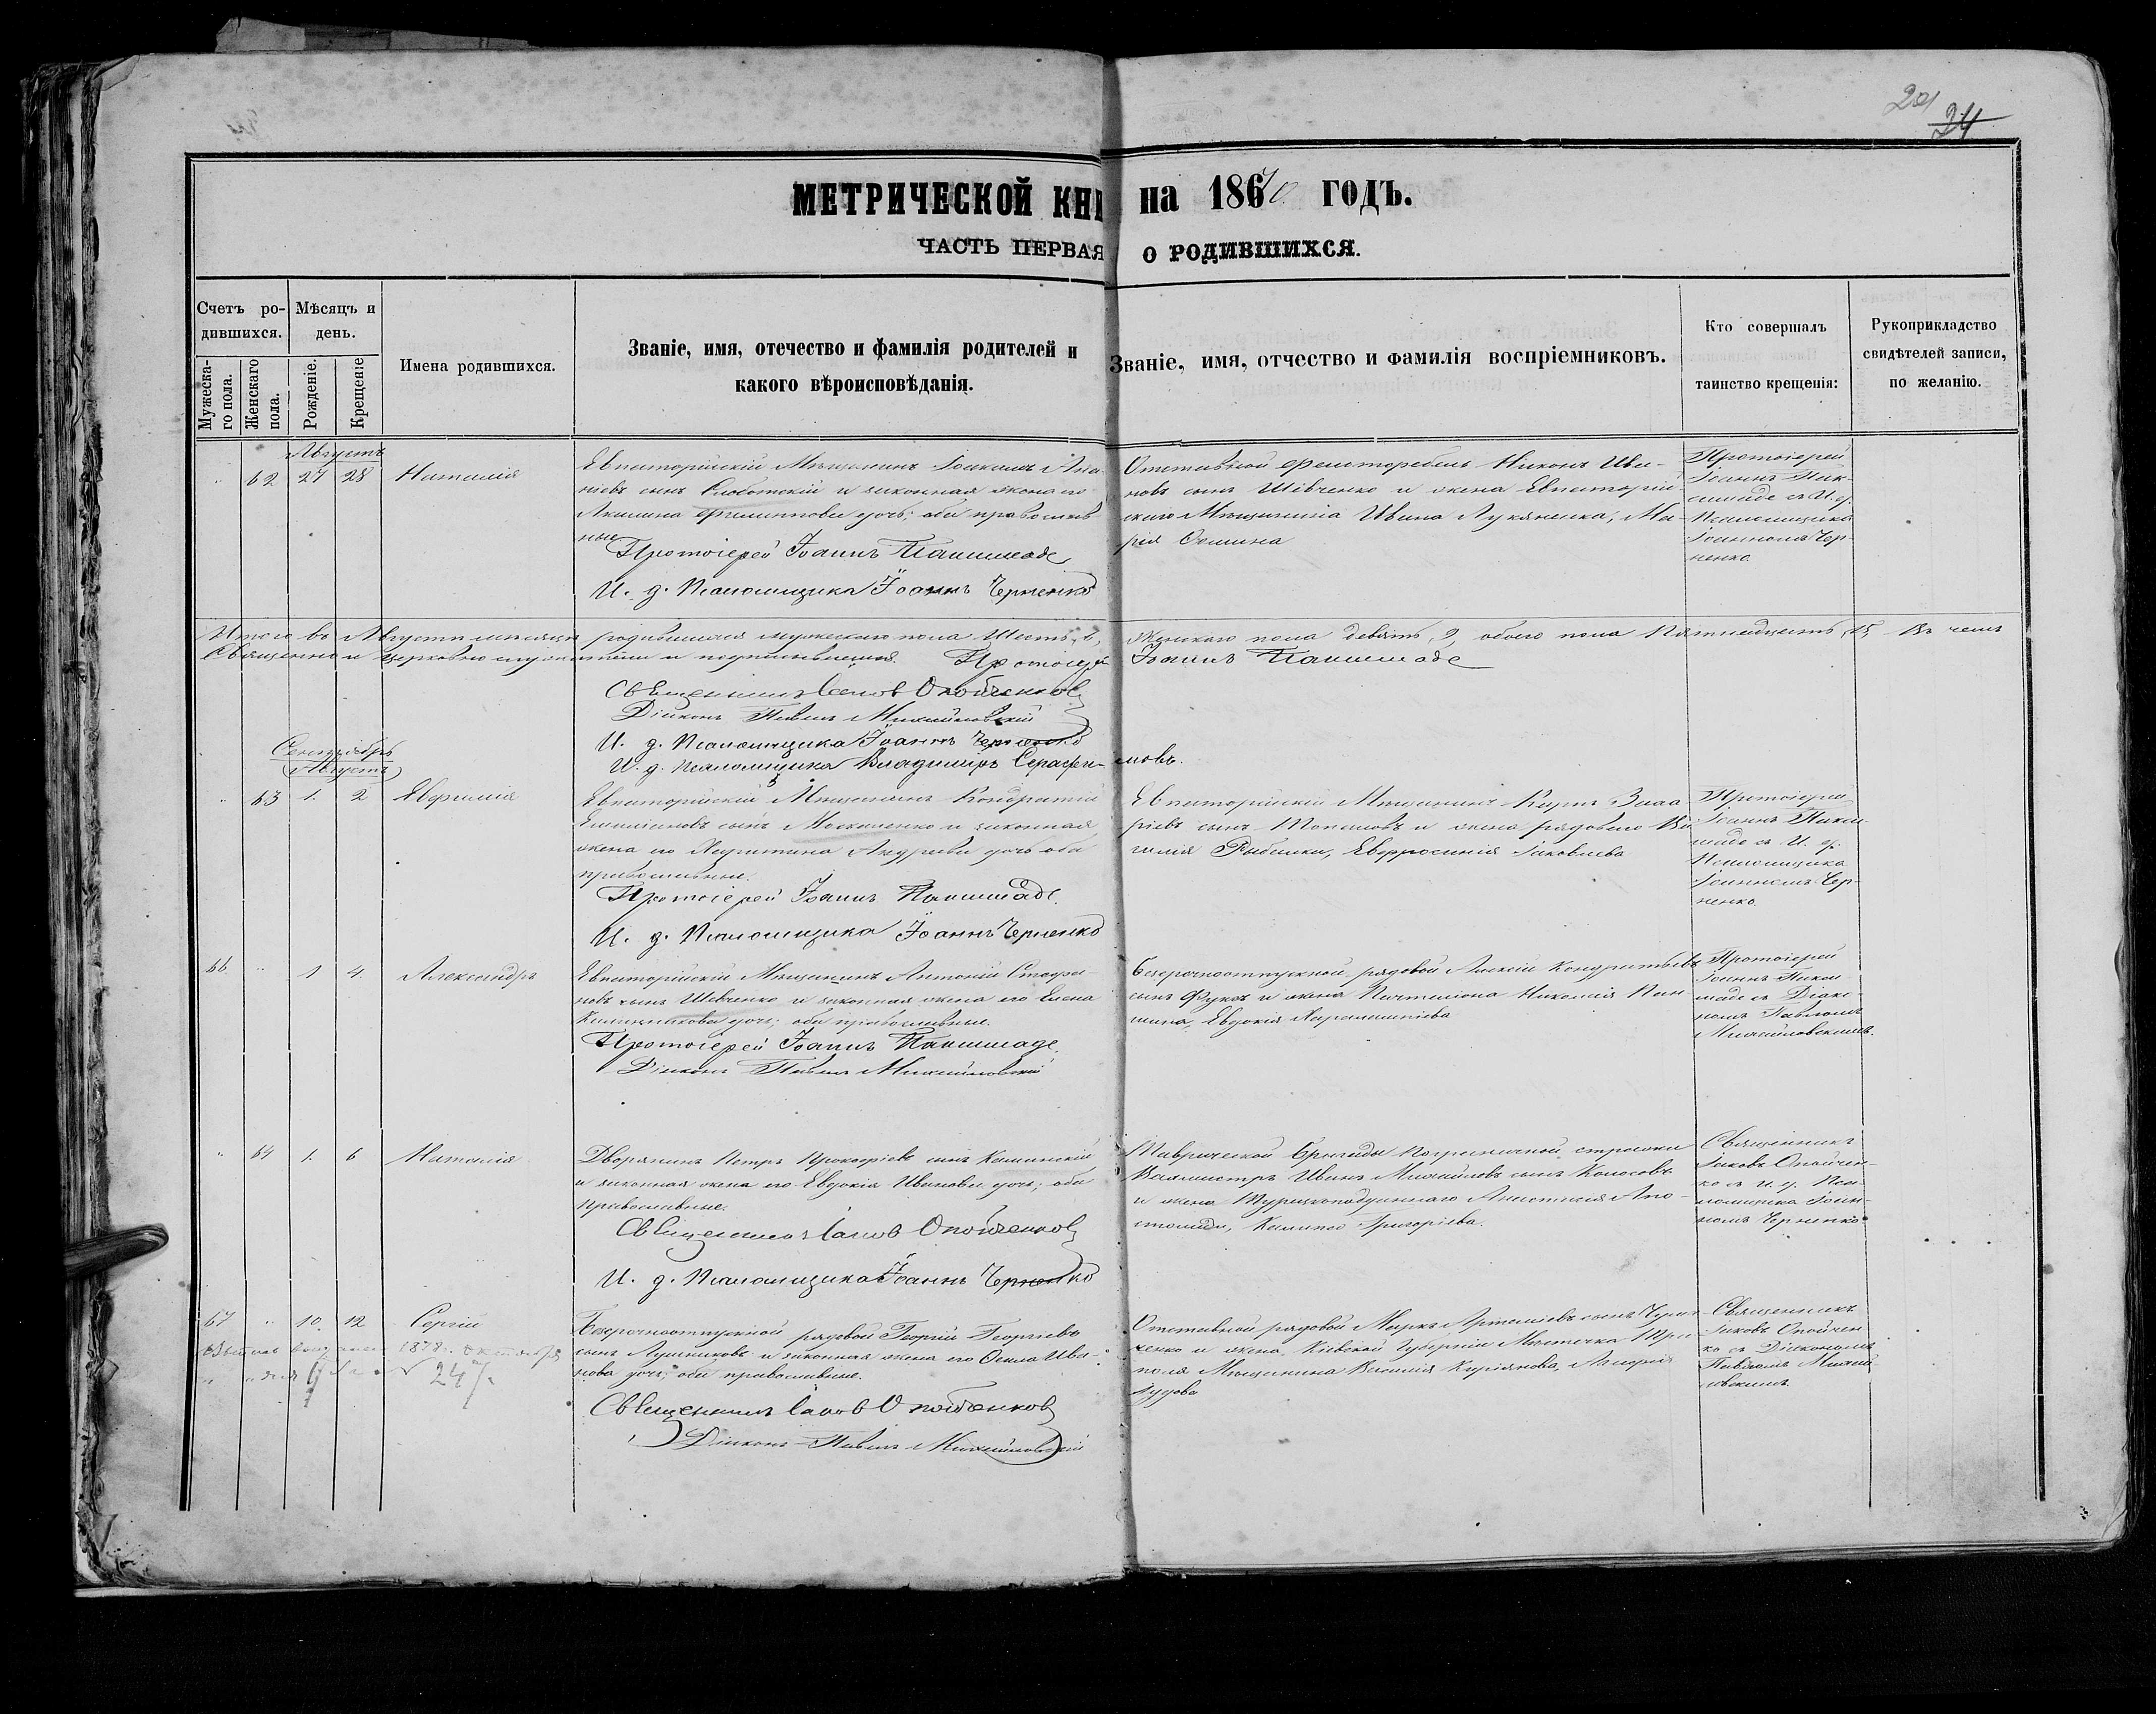 20
34
МЕТРИЧЕСКОЙ КНИ на 1870 ГОДЪ.
ЧАСТЬ ПЕРВАЯ О РОДИВШИХСЯ.
Счетъ родившихся.
Мужескаго пола.
Женскаго пола.
Мѣсяцъ и день.
Рожденіе.
Крещеніе
Имена родившихся.
Званіе, имя, отечество и фамилія родителей и
какого вѣроисповѣданія.
Званіе, имя, отчество и фамилія воспріемниковъ.
Кто совершалъ
таинство крещенія:
Рукоприкладство
свидѣтелей записи,
по желанію.
Августъ
62 27 28 Наталія
Евпаторійскій Мѣщанинъ Іоакимъ Ана-
ніевъ сынъ Слоботскій и законная жена его
Акилина Филиппова дочь; оба православ-
ные
Протоіерей Іоаннъ
И. д. Псаломщика Іоаннъ Черненко
Отставной Никонъ Ива-
новъ сынъ Шевченко и жена Евпаторій-
скаго Мѣщанина Ивана Лукяненка, Ма-
рія Ѳомина
Протоіерей
Іоаннъ
съ И. д.
Псаломщика
Іоанномъ Чер-
ненко.
Итого въ Августѣ мѣсяцѣ родившихся мужескаго пола Шесть, 6, Женскаго пола девять, 9, обоего пола Пятнадцать, 15 Въ чемъ
Священно и церковно служители и подписываемся. Протоіерей Іоаннъ
Священникъ Іаковъ Опойченков
Діаконъ Павелъ Михайловскій
И. д. Псаломщика Іоаннъ Черненко
И. д. Псаломщика Владиміръ Серафимовъ.
Сентябрь
(Августъ)
63 1. 2 Евфимія
Евпаторійскій Мѣщанинъ Кондратій
сынъ Москаленко и законная
жена его Харитина Андреева дочь оба
православные.
Протоіерей Іоаннъ
И. д. Псаломщика Іоаннъ Черненко
Евпаторійскій Мѣщанинъ Карпъ
ріевъ сынъ и жена рядоваго Ва
силія Рыбалки, Евфросинія Іаковлева
Протоіерей
Іоаннъ
съ И. д.
Псаломщика
Іоанномъ Чер-
ненко.
66 1 4. Александръ
Евпаторійскій Мѣщанинъ Антоній Стефа
новъ сынъ Шевченко и законная жена его Елена
дочь; оба православные.
Протоіерей Іоаннъ
Діаконъ Павелъ Михайловскій
Безсрочноотпускной рядовой Алексій Кондратьевъ
сынъ и жена Почталіона Николая Пан
шина, Евдокія Харлампіева
Протоіерей
Іоаннъ
съ Діако
номъ Павломъ
Михайловскимъ.
64 1. 6 Наталія
Дворянинъ Петръ Прокофіевъ сынъ Каминскій
и законная жена его Евдокія Иванова дочь; оба
православные.
Священникъ Іаковъ Опойченков
И. д. Псаломщика Іоаннъ Черненко
Таврической Бригады Пограничной стражи
Вахмистръ Иванъ Михайловъ сынъ Колосовъ
и жена Турецкоподданнаго Анастасія Апо-
столиди, Григоріева.
Священникъ
Іаковъ Опойчен-
ко съ и. д. Пса-
ломщика Іоан-
номъ Черненко
67 10. 12 Сергій
1878. октября
24
Безсрочноотпускной рядовой Георгій Георгіевъ
сынъ Лушниковъ и законная жена его Ѳекла Ива-
нова дочь; оба православные.
Священникъ Іаковъ Опойченков
Діаконъ Павелъ Михайловскій
Отставной рядовой Маркъ Артеміевъ сынъ
ченко и жена, Кіевской Губерніи Мѣстечка Три
поля Мѣщанина Василія Кирьянова, Марія
Священникъ
Іаковъ Опойчен
ко съ Діакономъ
Павломъ Михай
ловскимъ.